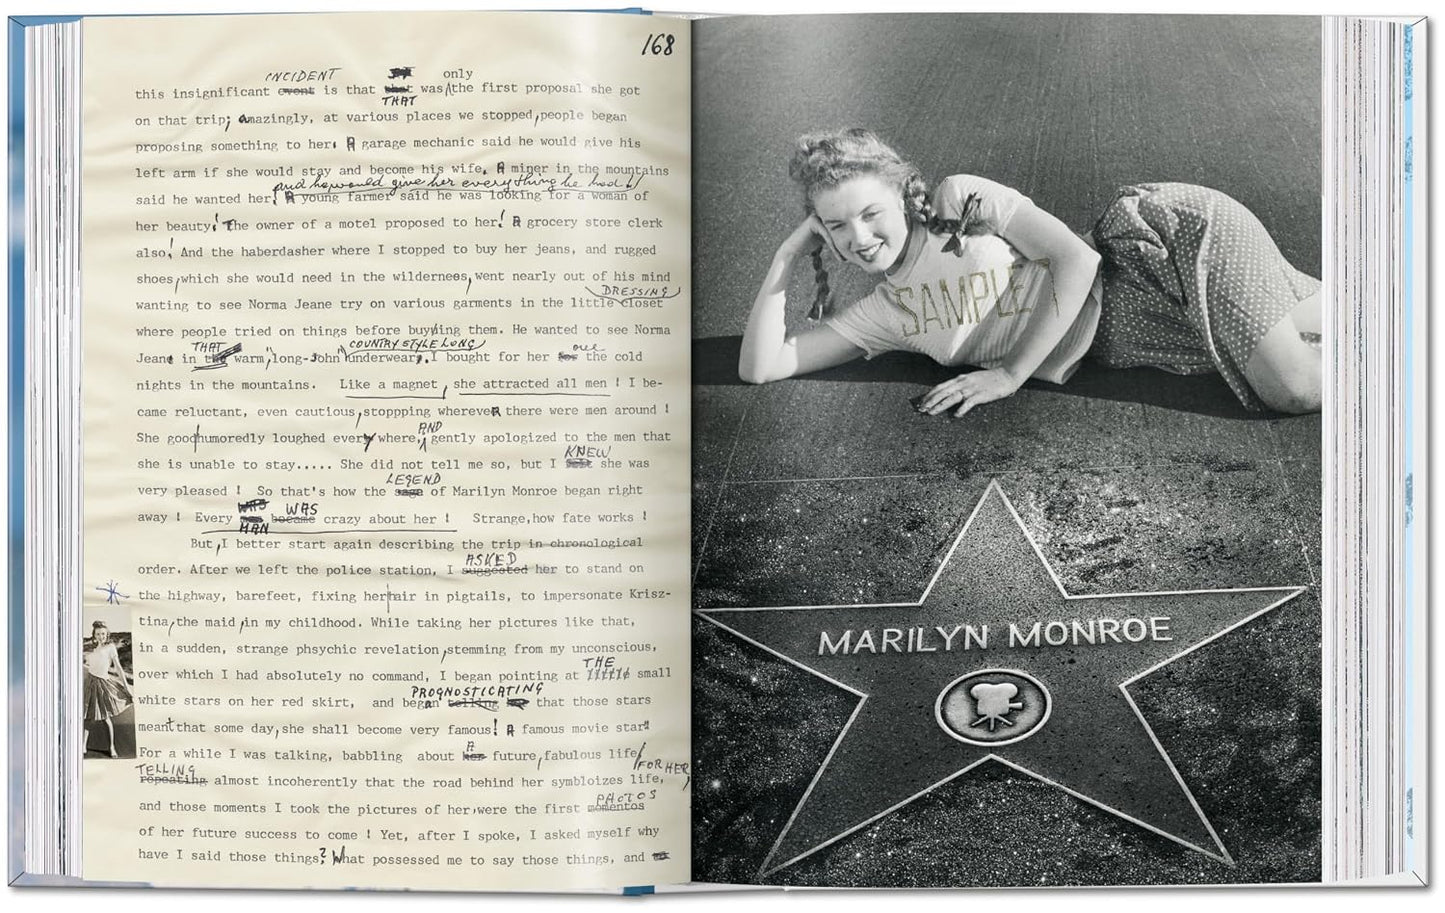 168
INCIDENT only
this insignificant event is that that was the first proposal she got
THAT
on that trip; amazingly, at various places we stopped, people began
proposing something to her. A garage mechanic said he would give his
left arm if she would stay and become his wife. A miner in the mountains
and he would give her everything he had!
said he wanted her! A young farmer said he was looking for a woman of
her beauty! The owner of a motel proposed to her! A grocery store clerk
also! And the haberdasher where I stopped to buy her jeans, and rugged
shoes, which she would need in the wilderness, went nearly out of his mind
DRESSING
wanting to see Norma Jeane try on various garments in the little closet
where people tried on things before buying them. He wanted to see Norma
THAT COUNTRY STYLE LONG one
Jeane in the warm, "long-John" underwear, I bought for her for the cold
nights in the mountains. Like a magnet, she attracted all men ! I be-
came reluctant, even cautious, stoppping wherever there were men around !
AND
She goodhumoredly loughed every where, gently apologized to the men that
KNEW
she is unable to stay..... She did not tell me so, but I felt she was
LEGEND
very pleased ! So that's how the saga of Marilyn Monroe began right
WAS WAS
away ! Every became crazy about her ! Strange, how fate works !
MAN
But, I better start again describing the trip in chronological
ASKED
order. After we left the police station, I suggested her to stand on
the highway, barefeet, fixing her hair in pigtails, to impersonate Krisz-
tina, the maid, in my childhood. While taking her pictures like that,
in a sudden, strange phsychic revelation, stemming from my unconscious,
THE
over which I had absolutely no command, I began pointing at little small
PROGNOSTICATING
white stars on her red skirt, and began telling her that those stars
meant that some day, she shall become very famous! A famous movie star"
A
For a while I was talking, babbling about her future, fabulous life
FOR HER,
TELLING
repeating almost incoherently that the road behind her symbloizes life,
PHOTOS
and those moments I took the pictures of her, were the first momentos
of her future success to come ! Yet, after I spoke, I asked myself why
have I said those things? What possessed me to say those things, and
SAMPLE
MARILYN MONROE